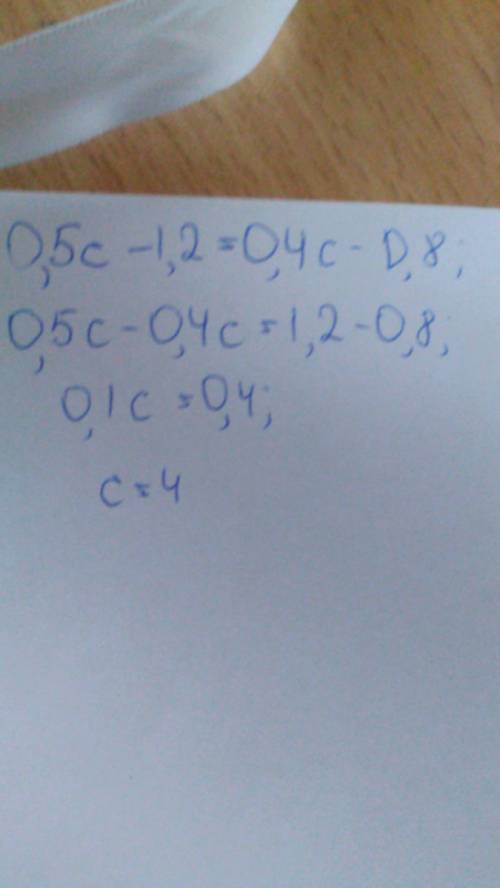 0,5c - 1,2 = 0,4c - 0,8;
0,5c - 0,4c = 1,2 - 0,8;
0,1c = 0,4;
c = 4